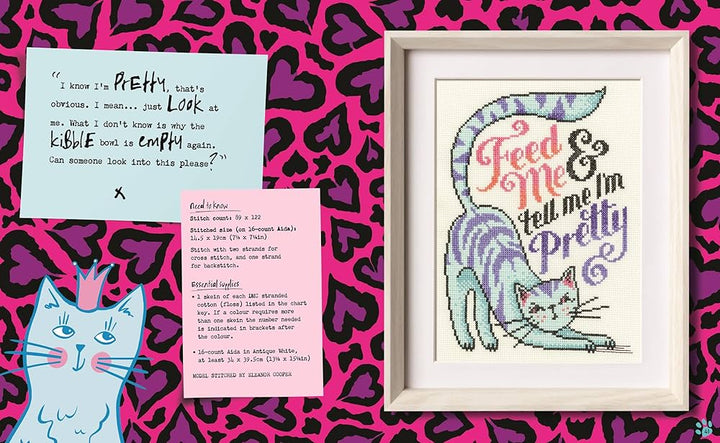 “I know I'm PrEtty, that's
obvious. I mean... just LOOK at
me. What I don't know is why the
kiBBLE bowl is emPty again.
Can someone look into this please?”
x
Need to know
Stitch count: 89 x 122
Stitched size (on 16-count Aida):
14.5 x 19cm (7¼ x 7¼in)
Stitch with two strands for
cross stitch, and one strand
for backstitch.
Essential supplies
• 1 skein of each DMC stranded
cotton (floss) listed in the chart
key. If a colour requires more
than one skein the number needed
is indicated in brackets after
the colour.
• 16-count Aida in Antique White,
at least 34 x 39.5cm (13¼ x 15¼in)
MODEL STITCHED BY ELEANOR COOPER
Feed
Me &
tell me I'm
Pretty